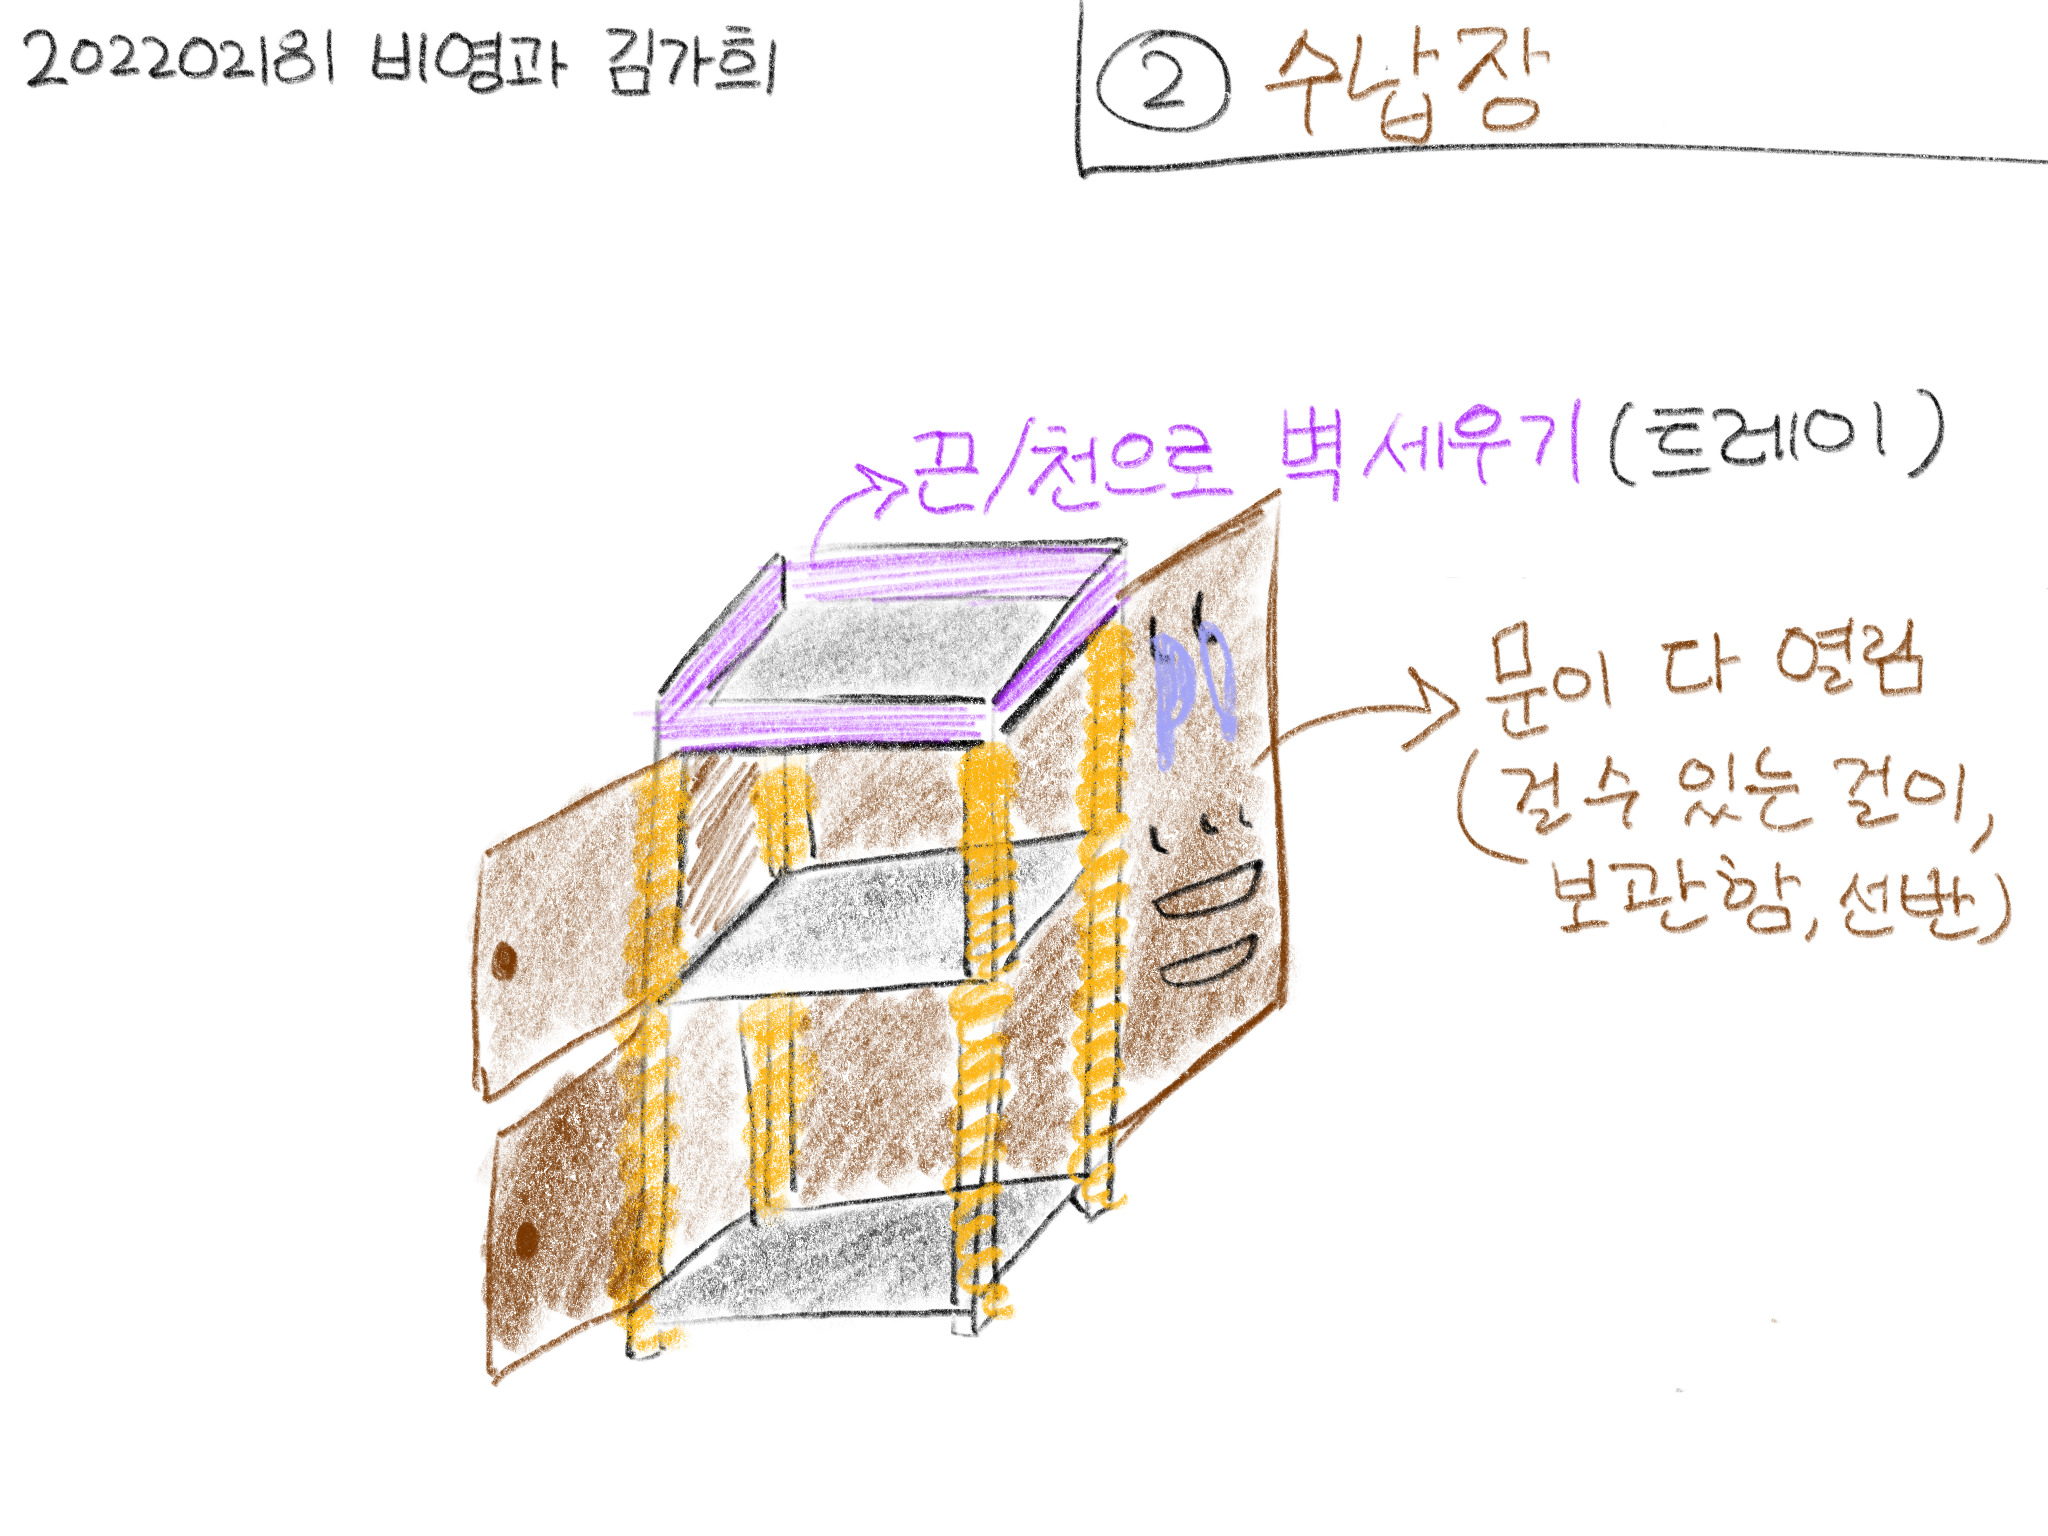 202202181 비영과 김가희
② 수납장
끈/천으로 벽 세우기 (트레이)
문이 다 열림
(걸수 있는 걸이,
보관함, 선반)